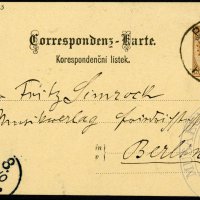 Correspondenz-Karte.
Korespondenční lístek.
Fritz Simrock
Musikverlag Friedrichstr
in
v
Berlin